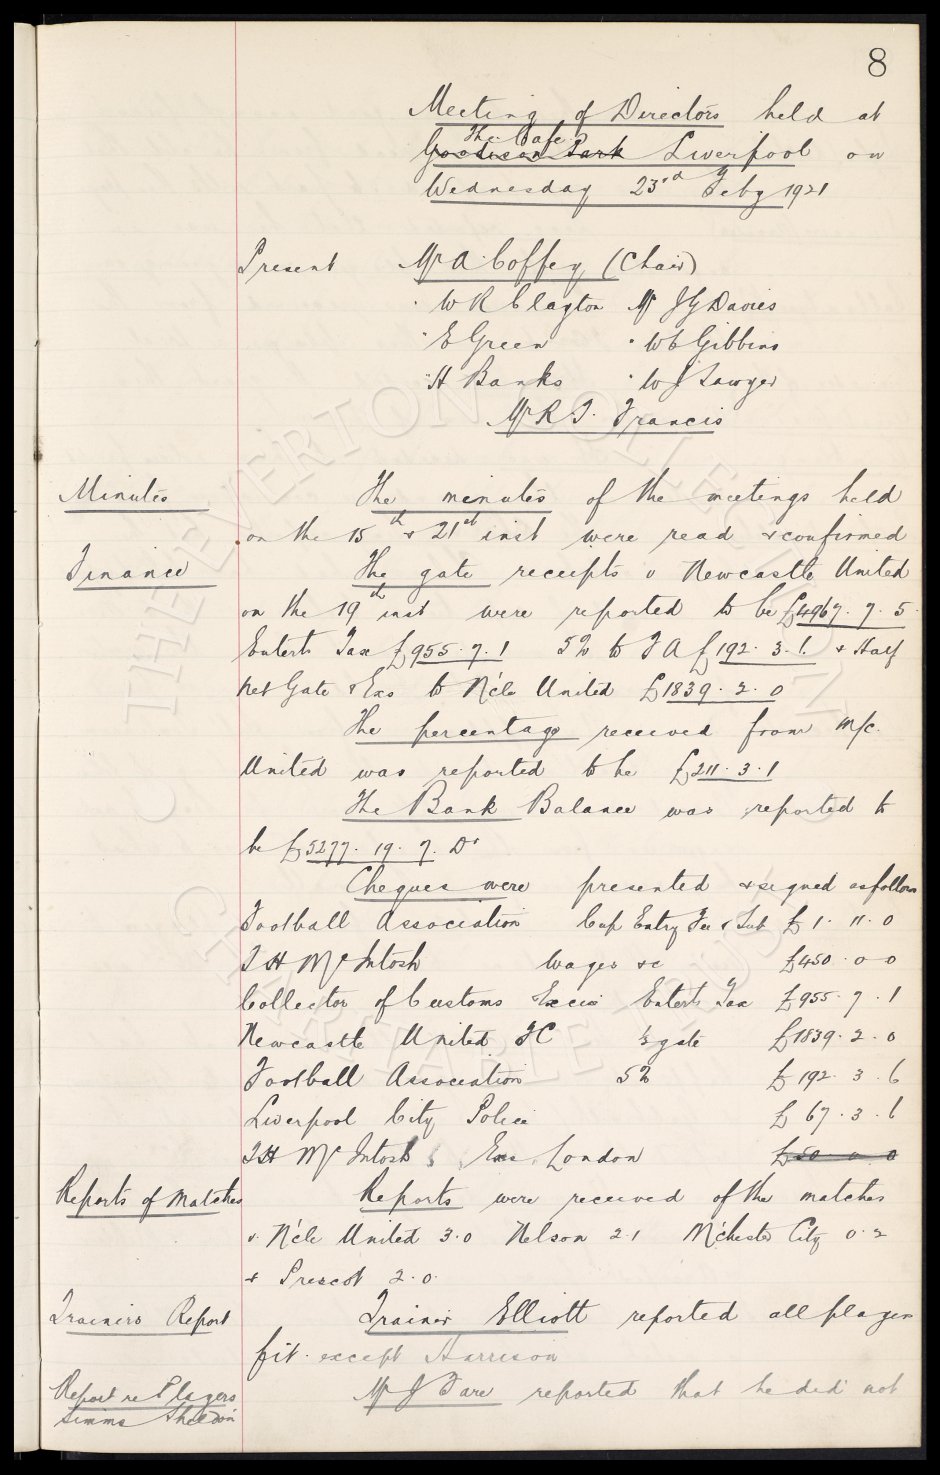 8
Meeting of Directors held at
The Cafe
Goodison Park Liverpool on
Wednesday 23rd Feby 1921
Present Mr A Coffey (Chair)
" W R Clayton Mr J G Davies
" E Green " W C Gibbins
" H Banks " W J Sawyer
Mr R T. Francis
Minutes The minutes of the meetings held
on the 15th & 21st inst were read & confirmed
Finance The gate receipts v Newcastle United
on the 19th inst were reported to be £4967. 7. 5.
Enterts Tax £955. 7. 1 5% to F A £192. 3. 6. & Half
net Gate & Exs to N'cle United £1839. 2. 0
The percentage received from M/c.
United was reported to be £211. 3. 1
The Bank Balance was reported to
be £5277. 19. 7. Dr
Cheques were presented & signed as follows
Football Association Cup Entry Fee & Sub £1. 11. 0
T H McIntosh Wages &c £450. 0 0
Collector of Customs & Excise Enterts Tax £955. 7. 1
Newcastle United FC ½ gate £1839. 2. 0
Football Association 5% £192. 3. 6
Liverpool City Police £67. 3. 6
T H McIntosh Exs London £50 0 0
Reports of Matches Reports were received of the matches
v. N'cle United 3.0 Nelson 2.1 M'chester City 0.2
& Prescot 2.0.
Trainers Report Trainer Elliott reported all players
fit. except Harrison
Report re Players Mr J Fare reported that he did not
Simms Sheldon
THE EVERTON COLLECTION
CHARITABLE TRUST